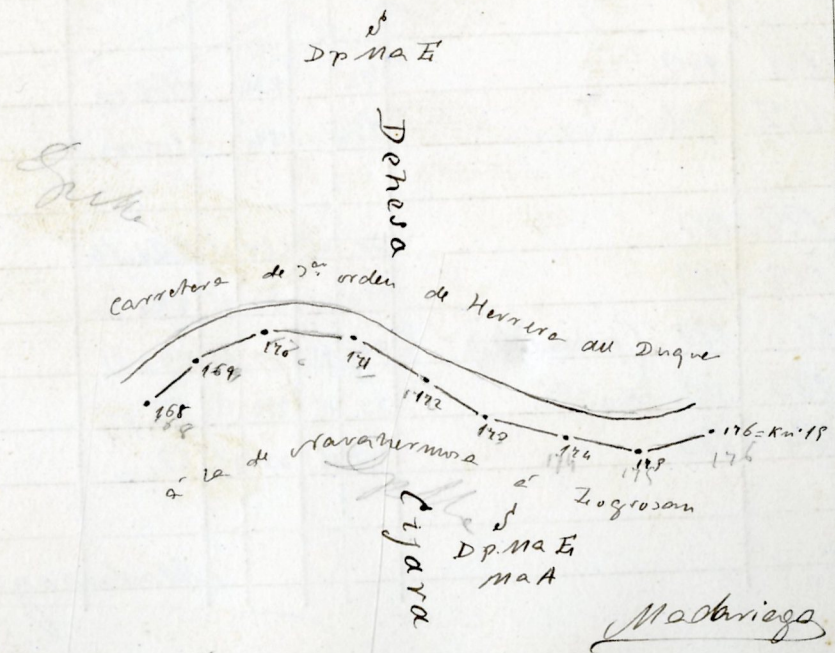 S
Dp Ma E
Dehesa
Carretera de 3er orden de Herrera del Duque
168
169
170
171
172
173
174
175
176=Km 19
168
174
175
176
á la de Navahermosa á Logrosan
Cijara
S
Dp. Ma E
Ma A
Madariaga